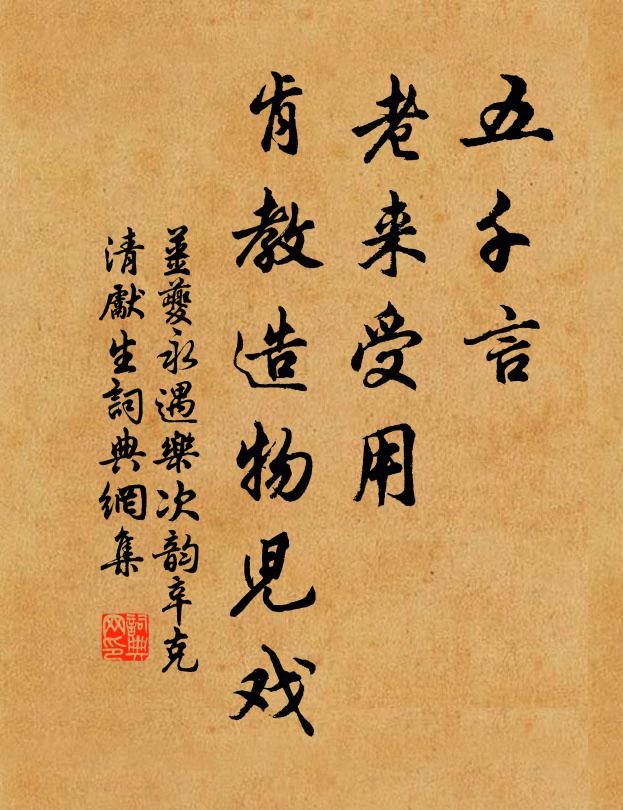 五千言
老来受用
肯教造物児戏
薑夔永遇樂次韵辛克
清獻生詞典網集
詞典
网印